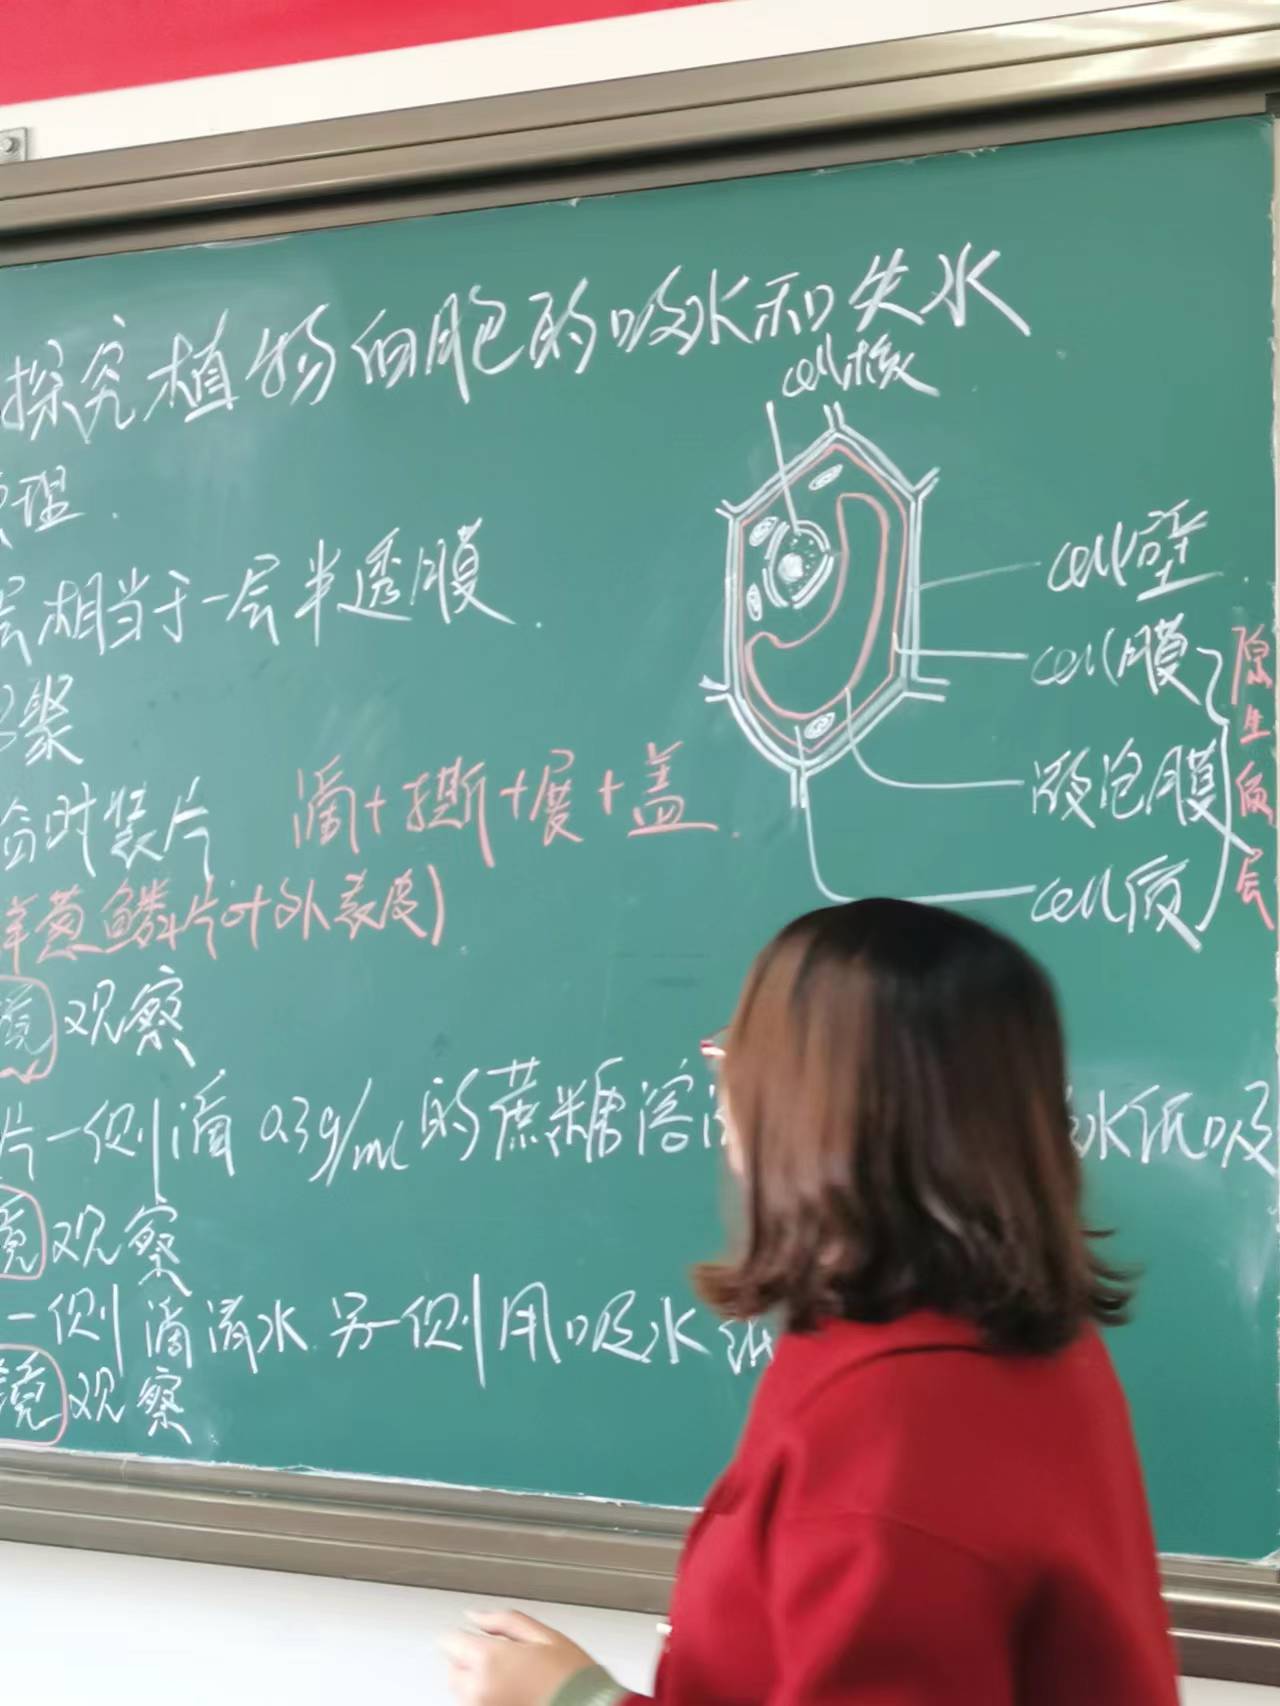 探究植物细胞的吸水和失水
cell核
原理.
层相当于一层半透膜.
cell壁
cell膜
原生质层
步聚
临时装片 滴+撕+展+盖.
液泡膜
洋葱鳞片叶外表皮)
cell质
镜观察
片一侧滴0.3g/ml的蔗糖溶 水纸吸
镜观察
一侧滴清水 另一侧用吸水纸
镜观察